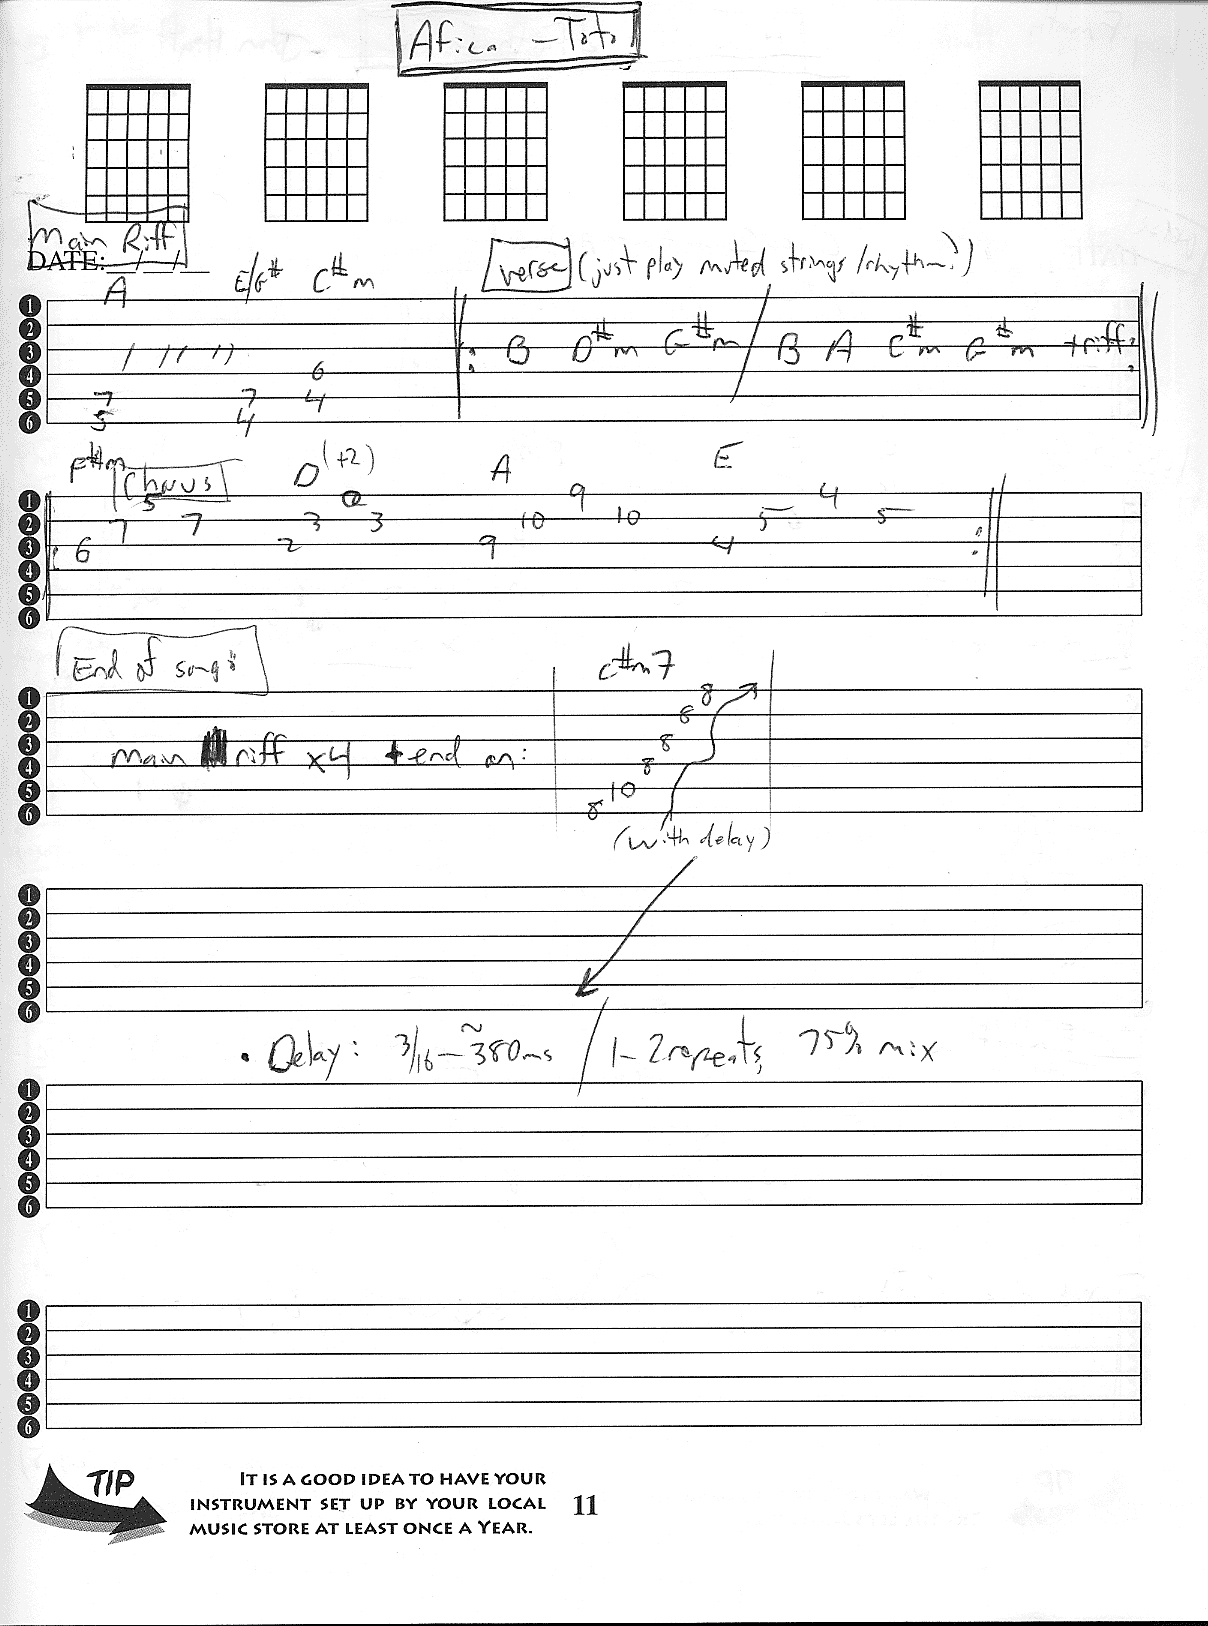 Africa - Toto
Main Riff
DATE: __/__/__
A E/G# C#m
verse (just play muted strings/rhythm?)
1
2
3
4
5
6
B D#m G#m / B A C#m G#m +riff
6
7 7 4
5 4
F#m Chorus D(+2) A E
1
2
3
4
5
6
5 0 9 4
7 7 3 3 10 10 5 5
6 2 9 4
End of song:
C#m7
1
2
3
4
5
6
main riff x4 + end on:
8
8
8
8
10
8
(with delay)
1
2
3
4
5
6
• Delay: 3/16 - ~380ms / 1-2 repeats, 75% mix
1
2
3
4
5
6
1
2
3
4
5
6
TIP
IT IS A GOOD IDEA TO HAVE YOUR
INSTRUMENT SET UP BY YOUR LOCAL
MUSIC STORE AT LEAST ONCE A YEAR.
11